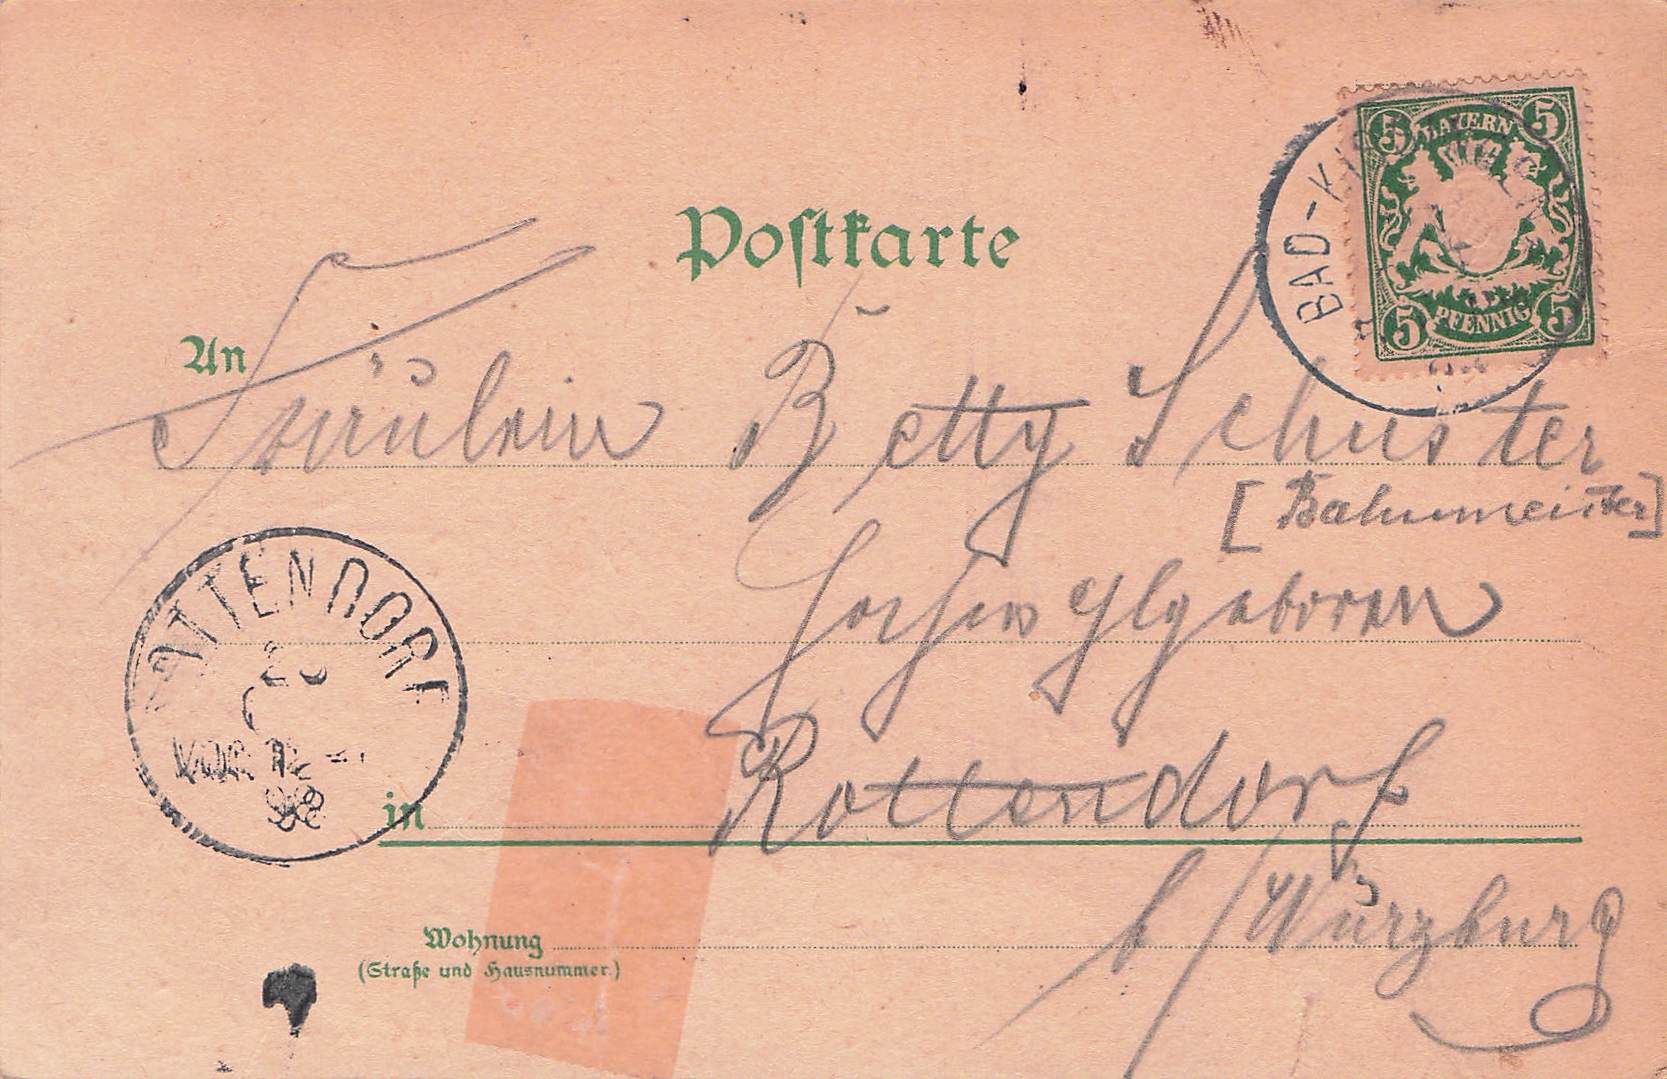 Postkarte
BAD-KIS
5 BAYERN 5
5 PFENNIG 5
An
Fräulein Betty Schuster
[Bahnmeister]
Hochwohlgeboren
ROTTENDORF
98
in Rottendorf
b/Würzburg
Wohnung
(Straße und Hausnummer.)